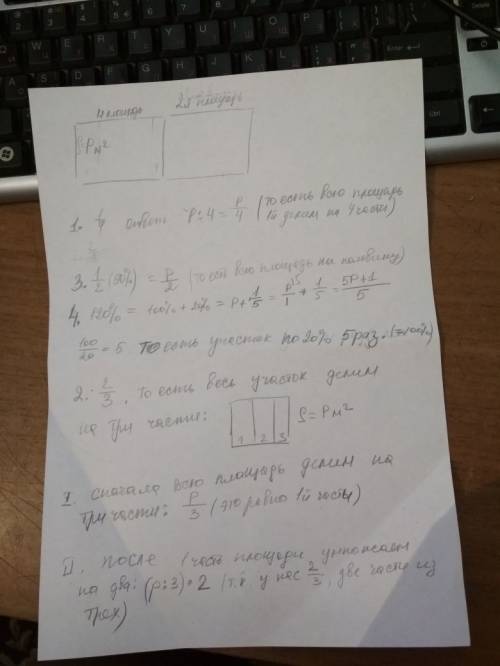 1я площадь 2я площадь
P м²
1. ответ P:4 = P/4 (то есть всю площадь
делим на 4 части)
3. 1/2 (50%) = P/2 (то есть всю площадь на половину)
4. 120% = 100% + 20% = P + 1/5 = P/1 + 1/5 = 5P+1/5
100/20 = 5 то есть участок по 20% 5 раз. (=100%)
2. 2/3, то есть весь участок делим
на три части: 1 2 3 S = P м²
I сначала всю площадь делим на
три части: P/3 (это равно 1й части)
II. после 1 часть площади умножаем
на два: (p:3)·2 (т.к. у нас 2/3, две части из
трех)